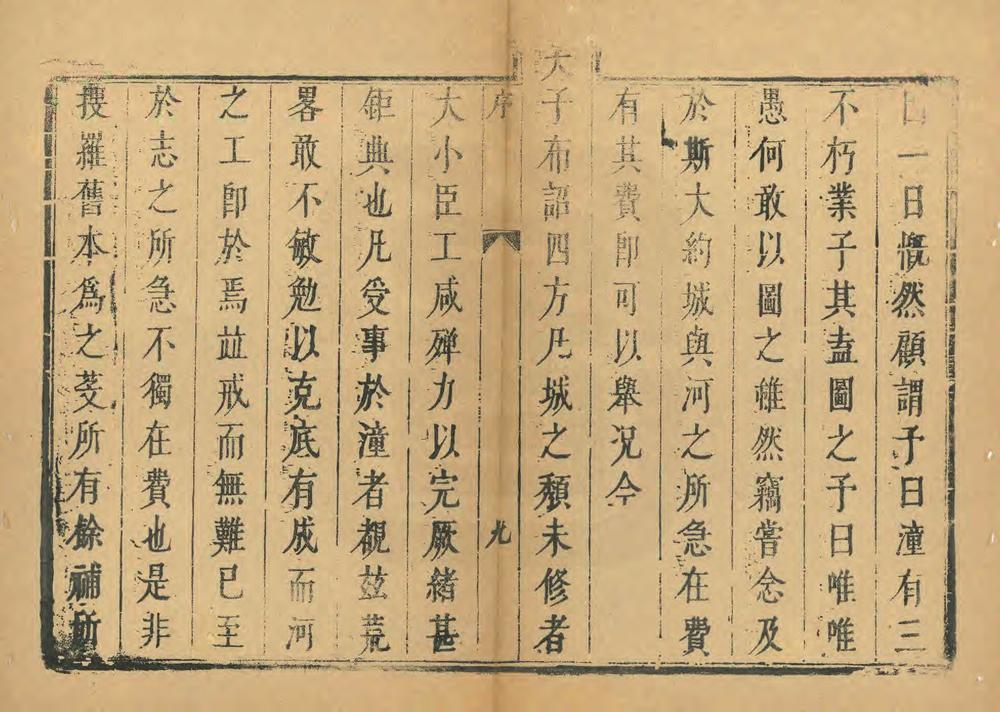 一日慨然顧謂予曰潼有三
不朽業子其盍圖之予曰唯唯
愚何敢以圖之雖然竊嘗念及
於斯大約城與河之所急在費
有其費即可以舉况今
天子布詔四方凡城之頽未修者
序 九
大小臣工咸殫力以完厥緒甚
鉅典也凡受事於潼者覩茲荒
畧敢不敏勉以克底有成而河
之工即於焉竝戒而無難已至
於志之所急不獨在費也是非
搜羅舊本爲之芟所有餘補所